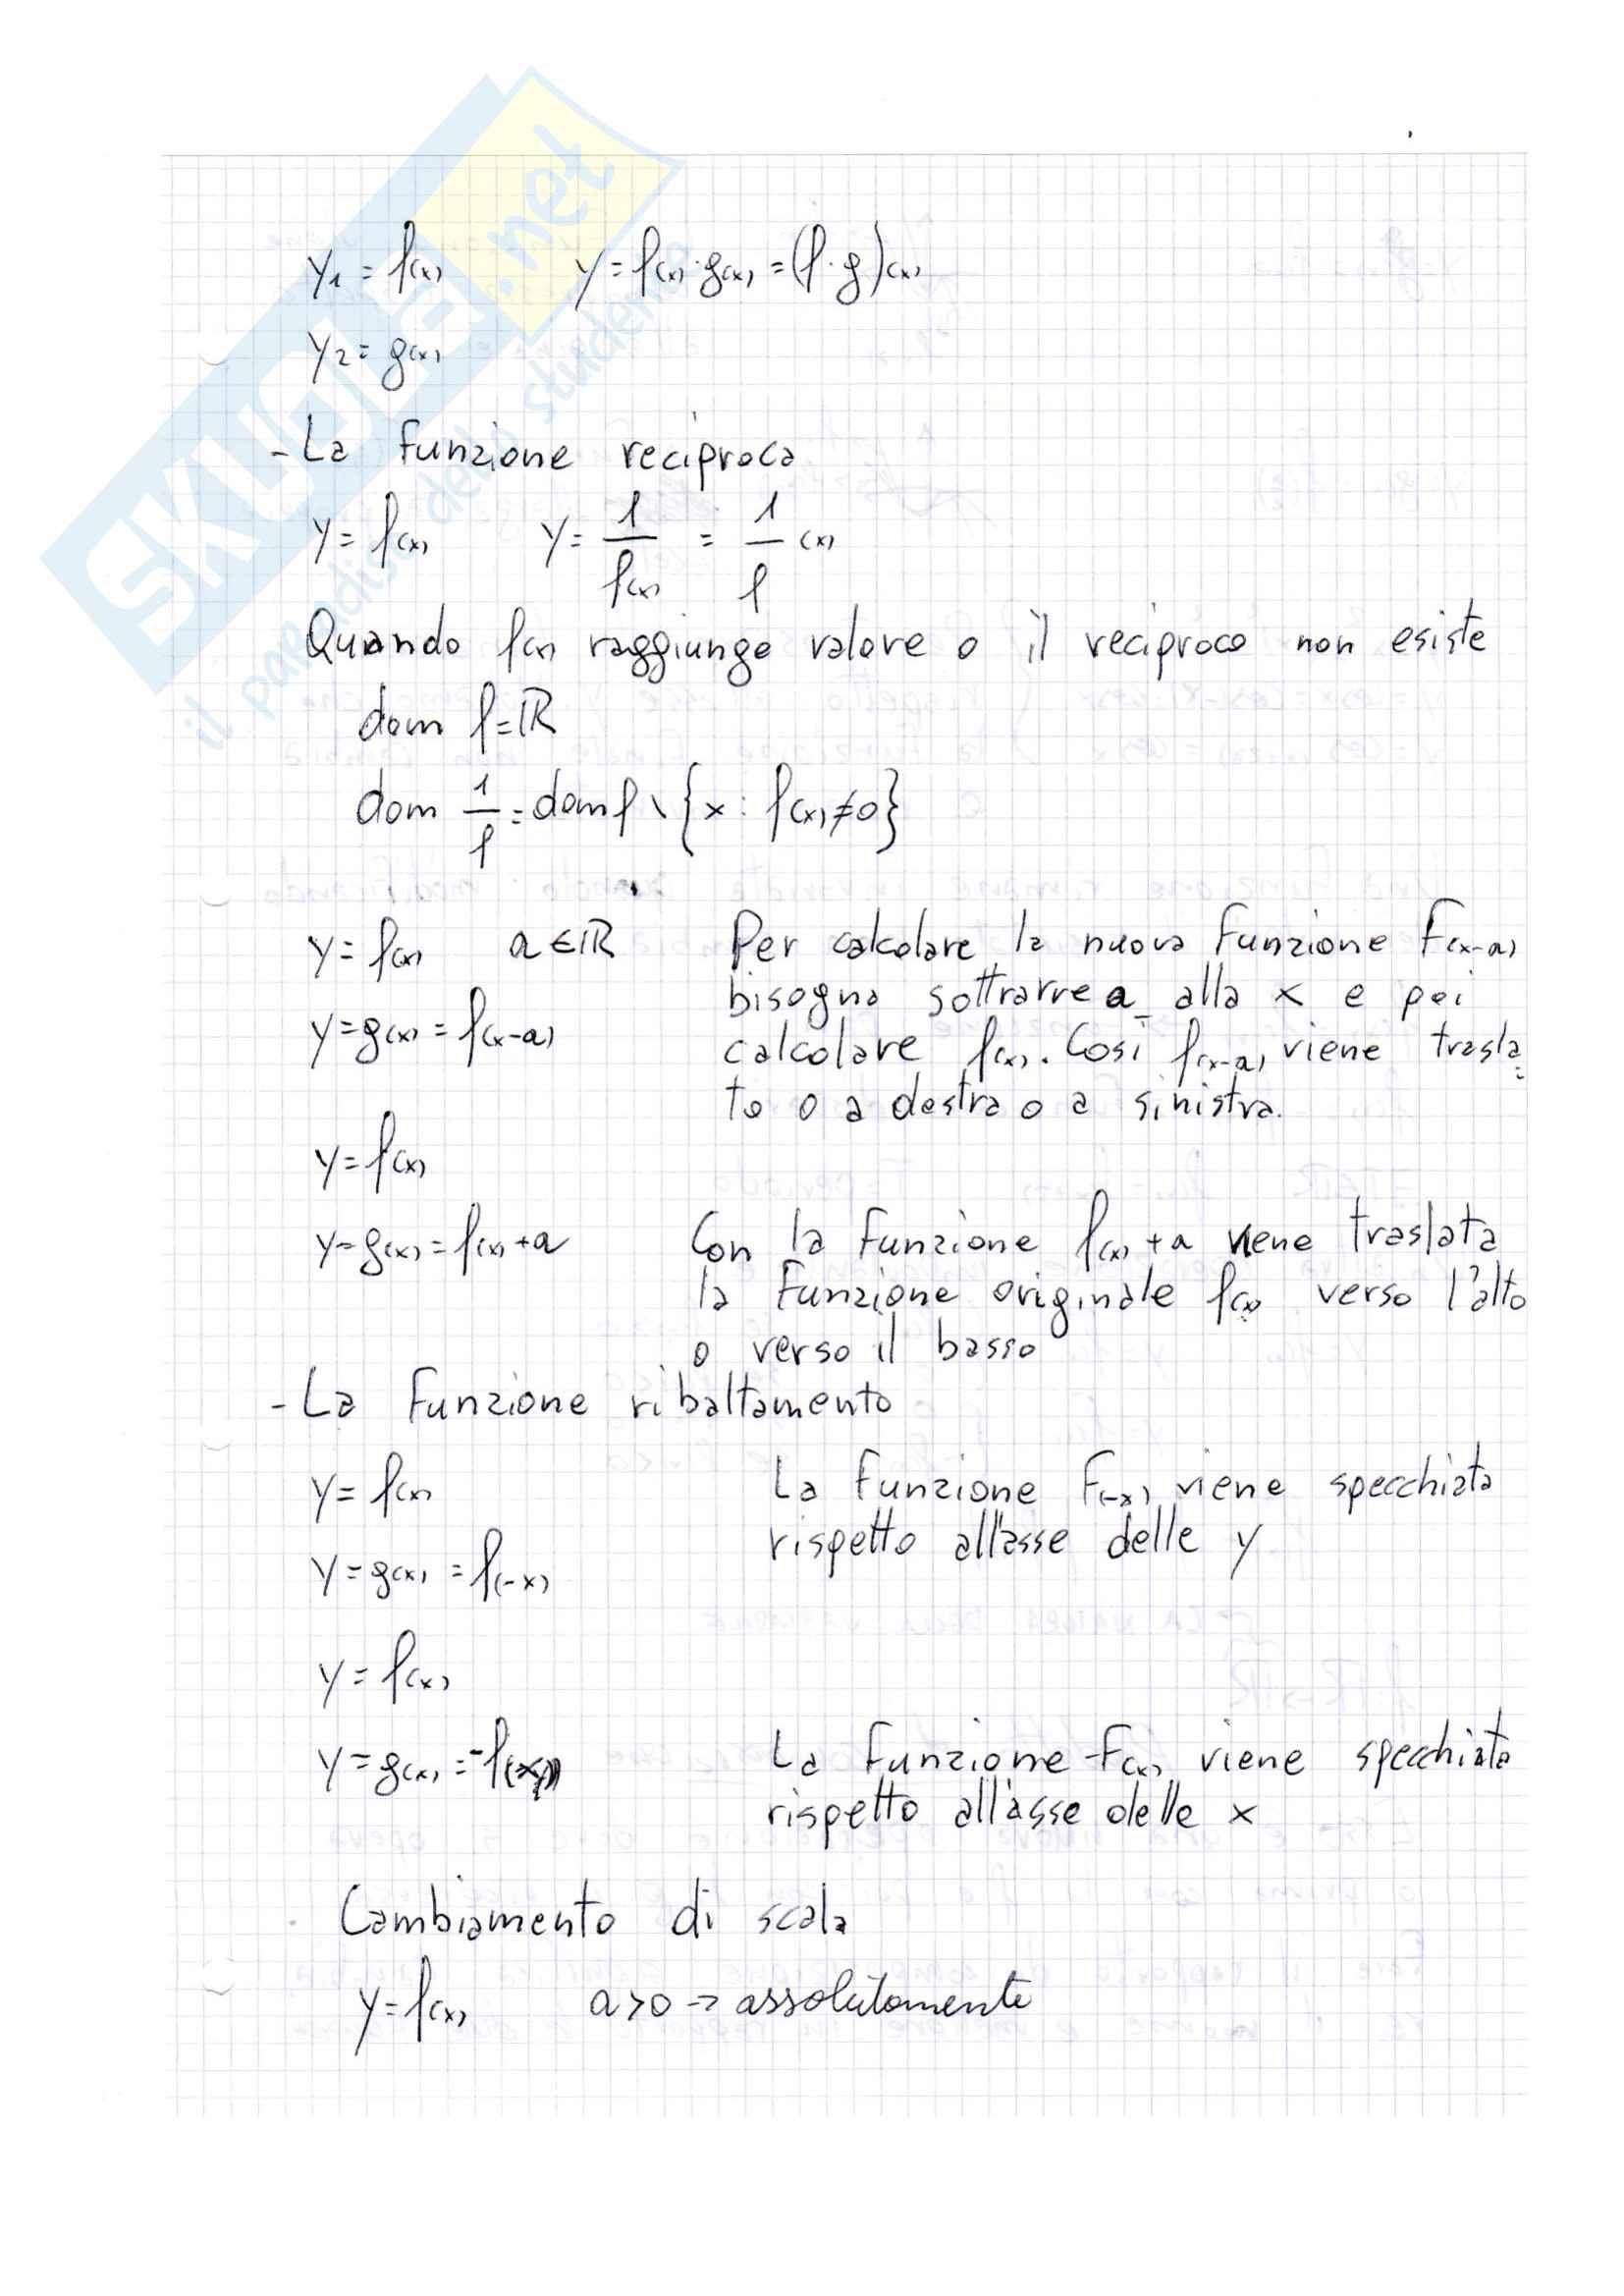 SKUOLA.net
il paradiso dello studente
y₁ = f(x)   y = f(x)·g(x) = (f·g)(x)
y₂ = g(x)
- La funzione reciproca
y = f(x)   y = 1/f(x) = 1/f (x)
Quando f(x) raggiunge valore 0 il reciproco non esiste
dom f = ℝ
dom 1/f = dom f \ {x : f(x) ≠ 0}
y = f(x)   a ∈ ℝ   Per calcolare la nuova funzione F(x-a)
bisogna sottrarre a alla x e poi
y = g(x) = f(x-a)   calcolare f(x). Così f(x-a) viene trasla=
to o a destra o a sinistra.
y = f(x)
y = g(x) = f(x) + a   Con la funzione f(x) + a viene traslata
la funzione originale f(x) verso l'alto
o verso il basso
- La funzione ribaltamento
y = f(x)   La funzione F(-x) viene specchiata
rispetto all'asse delle y
y = g(x) = f(-x)
y = f(x)
y = g(x) = -f(x)   La funzione -F(x) viene specchiata
rispetto all'asse delle x
Cambiamento di scala
y = f(x)   a > 0 → assolutamente